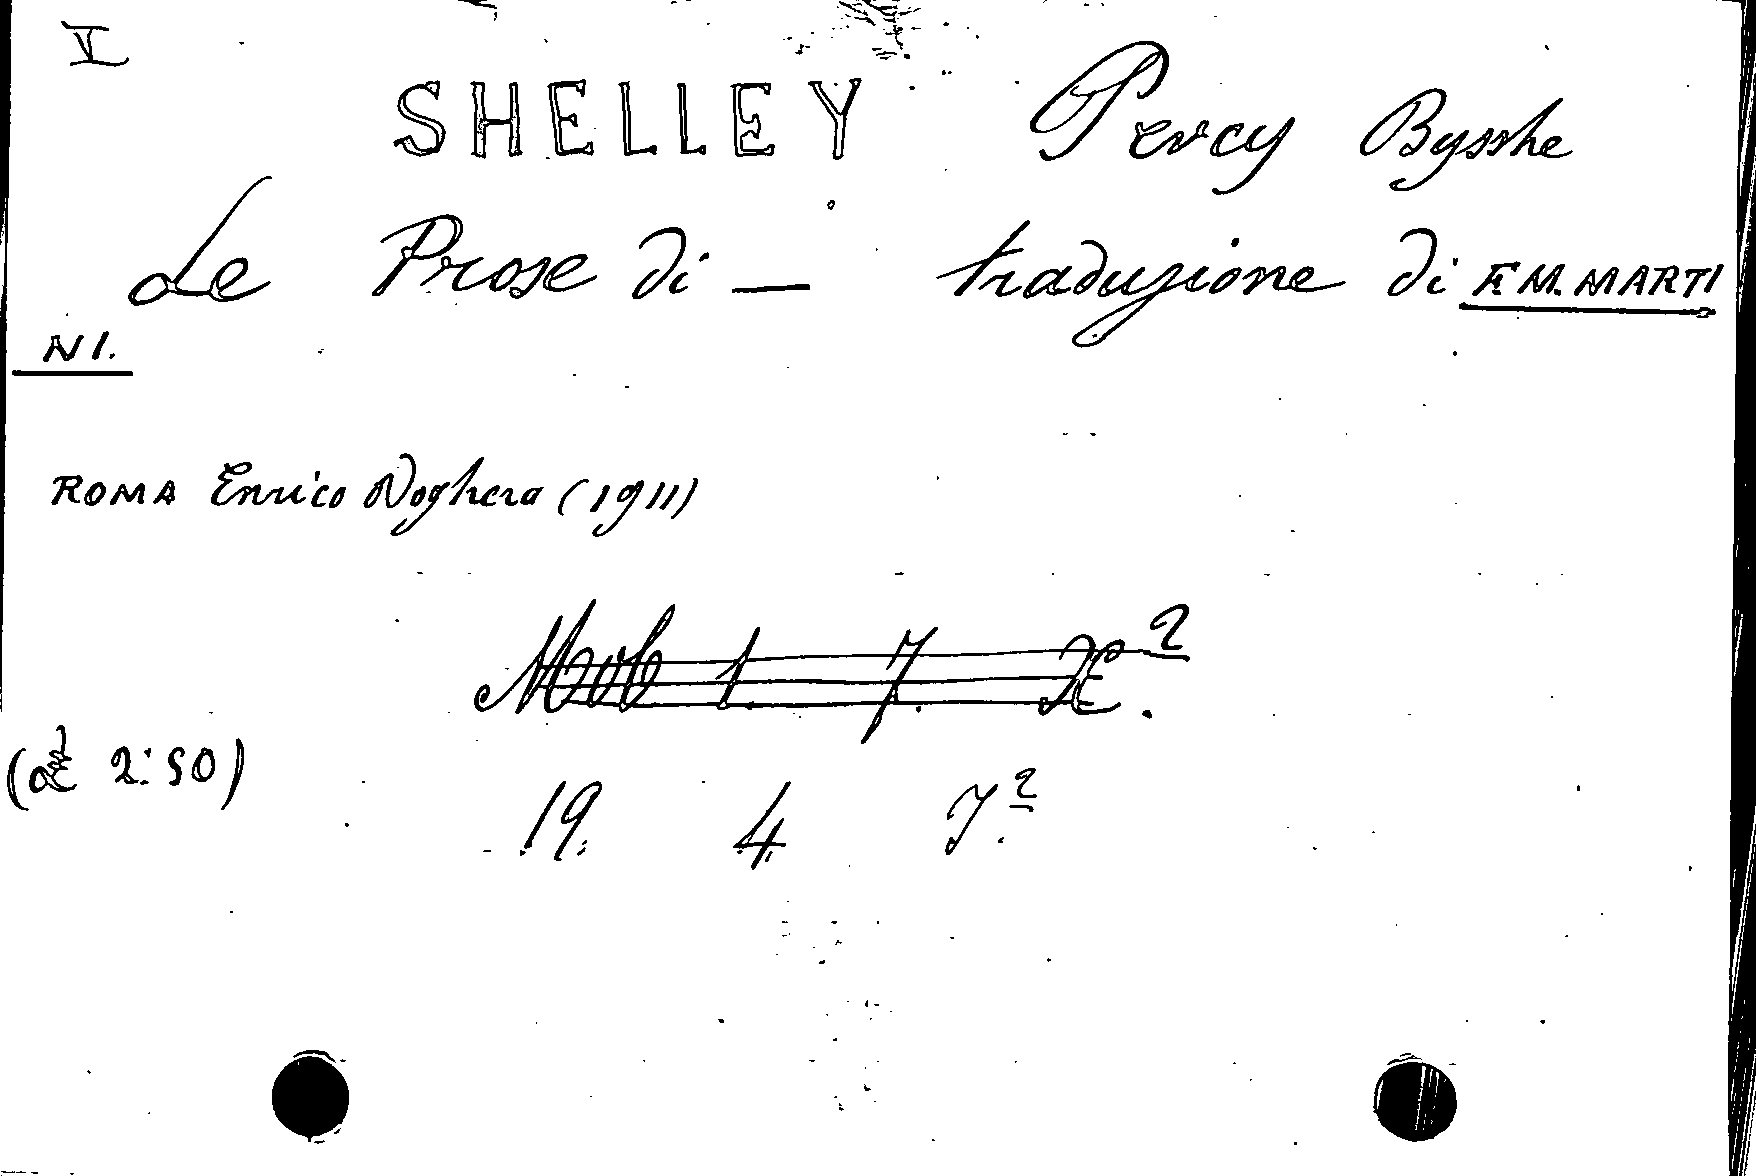 V
SHELLEY Percy Bysshe
Le Prose di — traduzione di F. M. MARTI
NI.
ROMA Enrico Voghera (1911)
Mob 1. 7. 2
(£ 2:50)
19. 4. 7.2